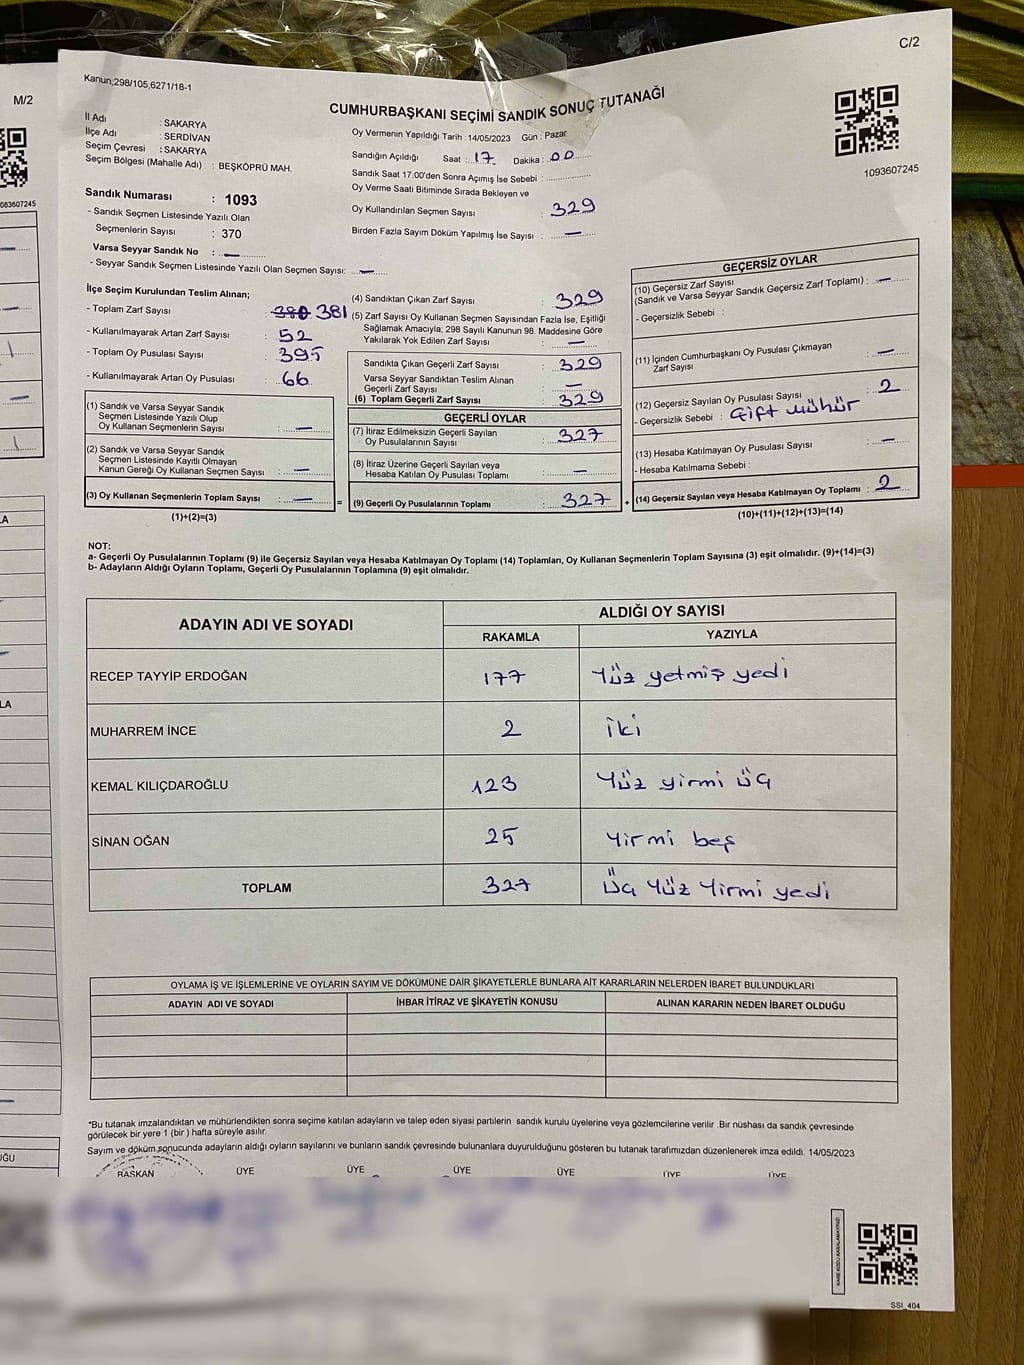 C/2
Kanun;298/105,6271/18-1
M/2
CUMHURBAŞKANI SEÇİMİ SANDIK SONUÇ TUTANAĞI
İl Adı : SAKARYA
İlçe Adı : SERDİVAN
Seçim Çevresi : SAKARYA
Seçim Bölgesi (Mahalle Adı) : BEŞKÖPRÜ MAH.
Oy Vermenin Yapıldığı Tarih : 14/05/2023 Gün : Pazar
Sandığın Açıldığı Saat : 17 Dakika : 00
Sandık Saat 17:00'den Sonra Açımış İse Sebebi :
Oy Verme Saati Bitiminde Sırada Bekleyen ve
Oy Kullandırılan Seçmen Sayısı : 329
Birden Fazla Sayım Döküm Yapılmış İse Sayısı : —
1093607245
Sandık Numarası : 1093
- Sandık Seçmen Listesinde Yazılı Olan
Seçmenlerin Sayısı : 370
Varsa Seyyar Sandık No : —
- Seyyar Sandık Seçmen Listesinde Yazılı Olan Seçmen Sayısı: —
İlçe Seçim Kurulundan Teslim Alınan;
- Toplam Zarf Sayısı : 380 381
- Kullanılmayarak Artan Zarf Sayısı : 52
- Toplam Oy Pusulası Sayısı : 395
- Kullanılmayarak Artan Oy Pusulası : 66
(1) Sandık ve Varsa Seyyar Sandık
Seçmen Listesinde Yazılı Olup
Oy Kullanan Seçmenlerin Sayısı : —
(2) Sandık ve Varsa Seyyar Sandık
Seçmen Listesinde Kayıtlı Olmayan
Kanun Gereği Oy Kullanan Seçmen Sayısı : —
(3) Oy Kullanan Seçmenlerin Toplam Sayısı : — =
(1)+(2)=(3)
(4) Sandıktan Çıkan Zarf Sayısı : 329
(5) Zarf Sayısı Oy Kullanan Seçmen Sayısından Fazla İse, Eşitliği
Sağlamak Amacıyla; 298 Sayılı Kanunun 98. Maddesine Göre
Yakılarak Yok Edilen Zarf Sayısı : —
Sandıkta Çıkan Geçerli Zarf Sayısı : 329
Varsa Seyyar Sandıktan Teslim Alınan
Geçerli Zarf Sayısı : —
(6) Toplam Geçerli Zarf Sayısı : 329
GEÇERLİ OYLAR
(7) İtiraz Edilmeksizin Geçerli Sayılan
Oy Pusulalarının Sayısı : 327
(8) İtiraz Üzerine Geçerli Sayılan veya
Hesaba Katılan Oy Pusulası Toplamı : —
(9) Geçerli Oy Pusulalarının Toplamı : 327 +
GEÇERSİZ OYLAR
(10) Geçersiz Zarf Sayısı
(Sandık ve Varsa Seyyar Sandık Geçersiz Zarf Toplamı) : —
- Geçersizlik Sebebi :
(11) İçinden Cumhurbaşkanı Oy Pusulası Çıkmayan
Zarf Sayısı : —
(12) Geçersiz Sayılan Oy Pusulası Sayısı : 2
- Geçersizlik Sebebi : Çift mühür
(13) Hesaba Katılmayan Oy Pusulası Sayısı : —
- Hesaba Katılmama Sebebi :
(14) Geçersiz Sayılan veya Hesaba Katılmayan Oy Toplamı : 2
(10)+(11)+(12)+(13)=(14)
NOT:
a- Geçerli Oy Pusulalarının Toplamı (9) ile Geçersiz Sayılan veya Hesaba Katılmayan Oy Toplamı (14) Toplamları, Oy Kullanan Seçmenlerin Toplam Sayısına (3) eşit olmalıdır. (9)+(14)=(3)
b- Adayların Aldığı Oyların Toplamı, Geçerli Oy Pusulalarının Toplamına (9) eşit olmalıdır.
ADAYIN ADI VE SOYADI ALDIĞI OY SAYISI
RAKAMLA YAZIYLA
RECEP TAYYİP ERDOĞAN 177 Yüz yetmiş yedi
MUHARREM İNCE 2 İki
KEMAL KILIÇDAROĞLU 123 Yüz yirmi üç
SİNAN OĞAN 25 Yirmi beş
TOPLAM 327 Üç Yüz Yirmi yedi
OYLAMA İŞ VE İŞLEMLERİNE VE OYLARIN SAYIM VE DÖKÜMÜNE DAİR ŞİKAYETLERLE BUNLARA AİT KARARLARIN NELERDEN İBARET BULUNDUKLARI
ADAYIN ADI VE SOYADI İHBAR İTİRAZ VE ŞİKAYETİN KONUSU ALINAN KARARIN NEDEN İBARET OLDUĞU
*Bu tutanak imzalandıktan ve mühürlendikten sonra seçime katılan adayların ve talep eden siyasi partilerin sandık kurulu üyelerine veya gözlemcilerine verilir .Bir nüshası da sandık çevresinde
görülecek bir yere 1 (bir ) hafta süreyle asılır.
Sayım ve döküm sonucunda adayların aldığı oyların sayılarını ve bunların sandık çevresinde bulunanlara duyurulduğunu gösteren bu tutanak tarafımızdan düzenlenerek imza edildi. 14/05/2023
BAŞKAN ÜYE ÜYE ÜYE ÜYE ÜYE ÜYE
KARE KODU KARALAMAYINIZ!
SSI_404